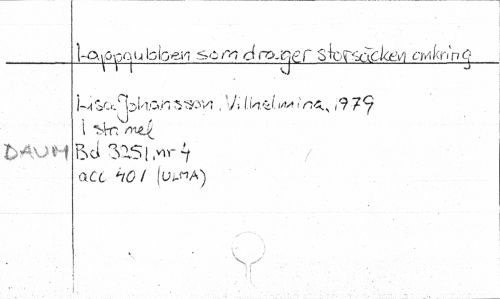 Lappgubben som drager storsäcken omkring
Lisa Johansson, Vilhelmina, 1979
1 str. mel
DAUM Bd 3251, nr 4
acc 401 (ULMA)